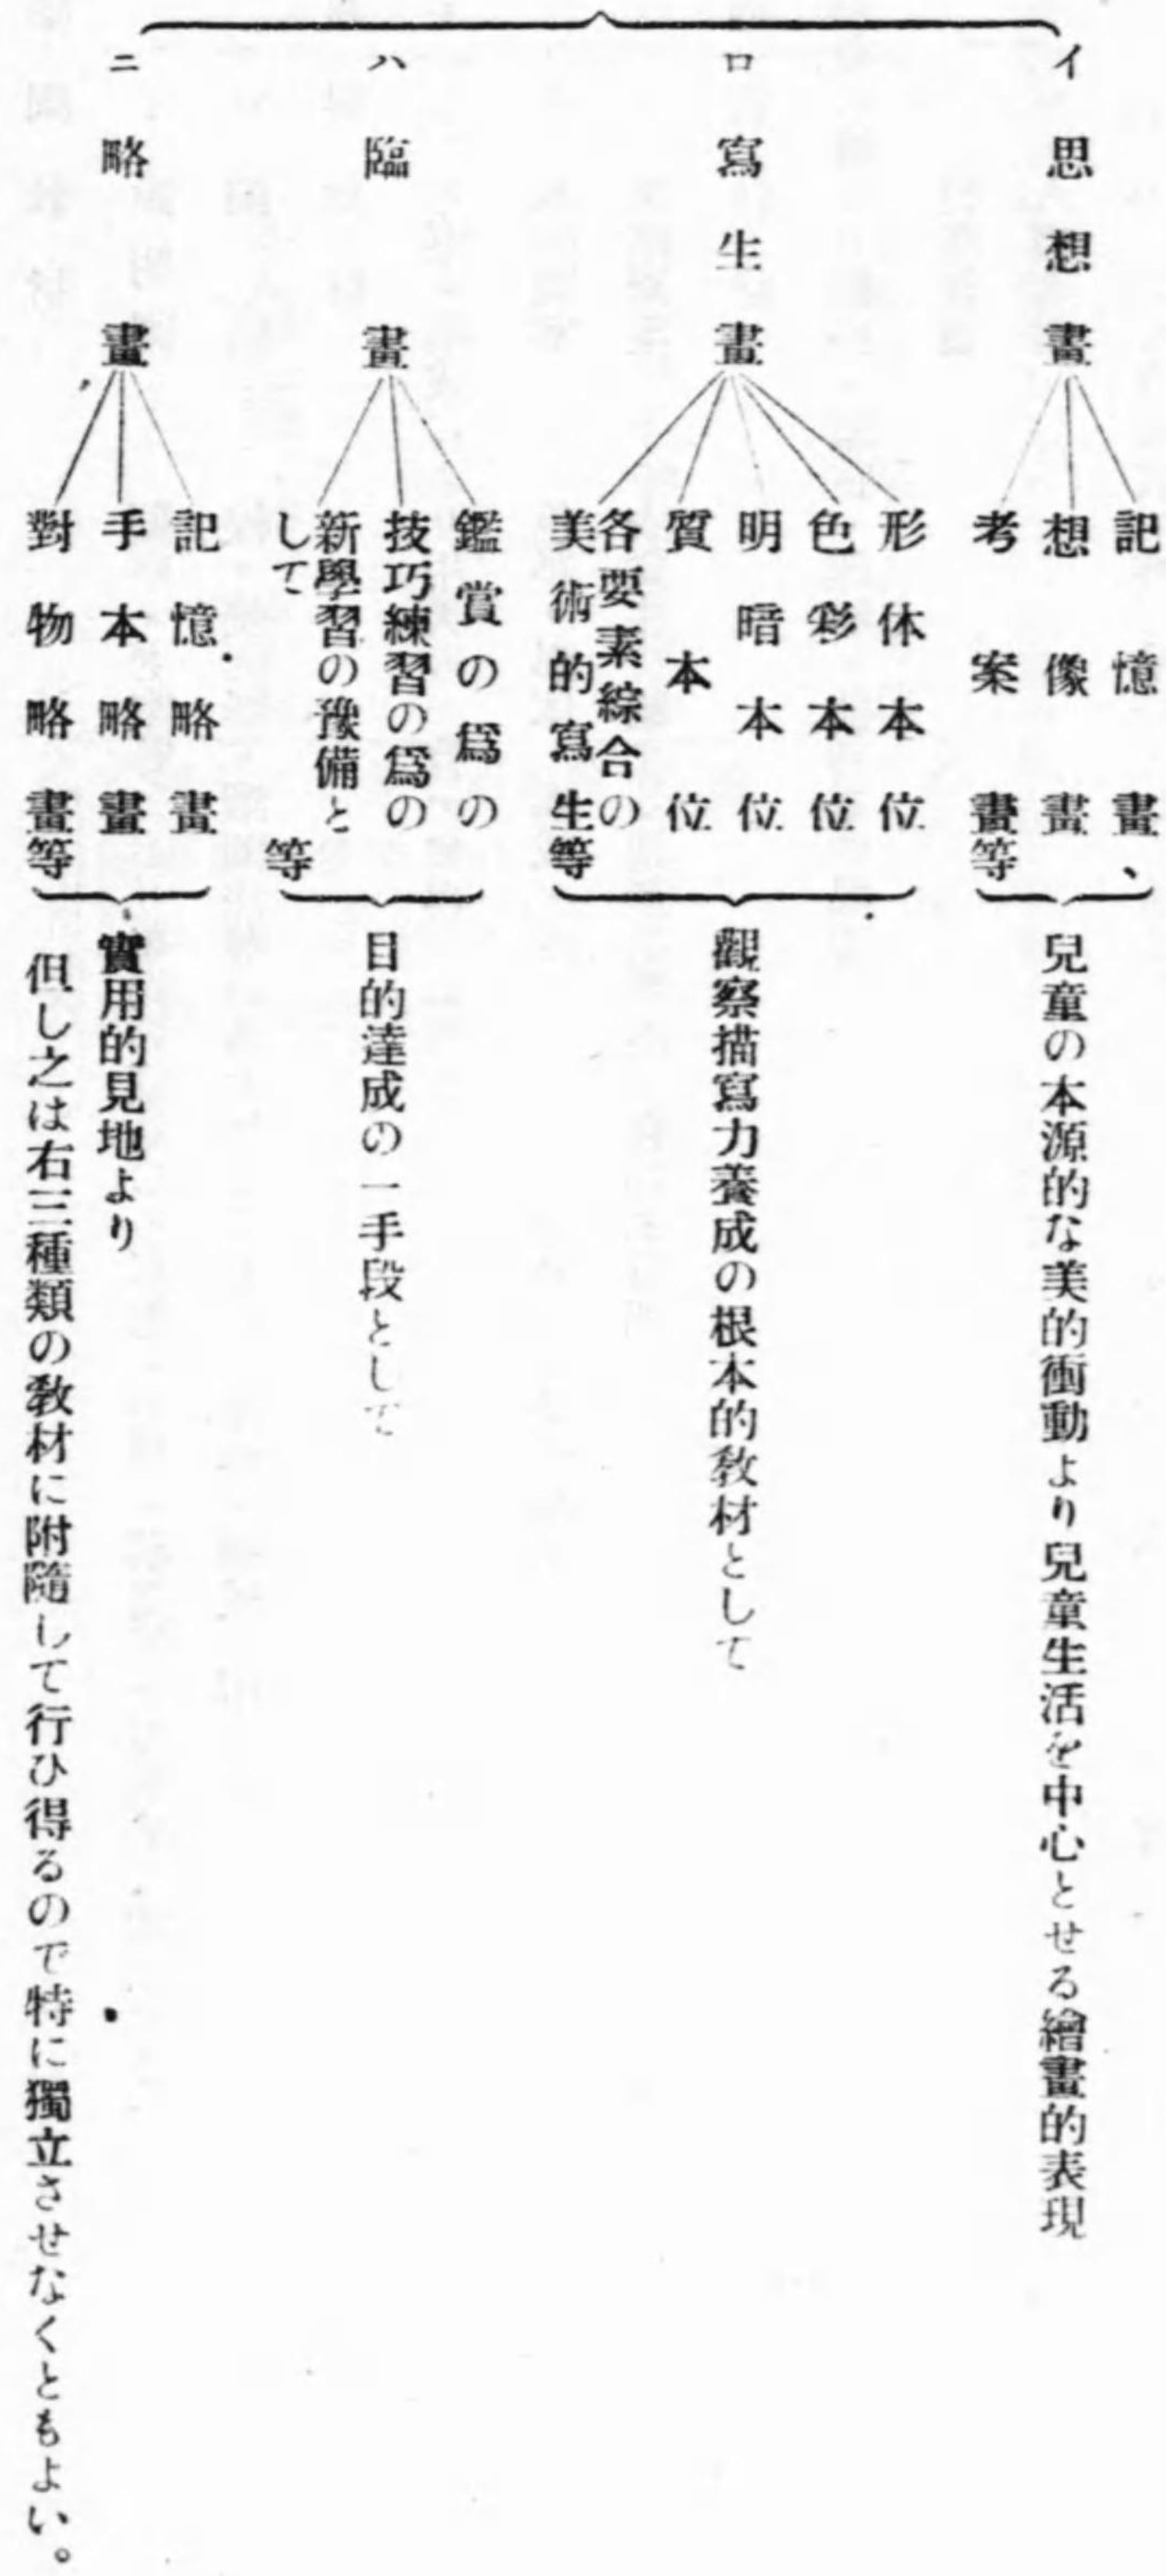 イ　思想畫
記憶畫、
想像畫
考案畫等
兒童の本源的な美的衝動より兒童生活を中心とせる繪畫的表現
ロ　寫生畫
形体本位
色彩本位
明暗本位
質本位
各要素綜合の
美術的寫生等
觀察描寫力養成の根本的敎材として
ハ　臨畫
鑑賞の爲の
技巧練習の爲の
新學習の豫備と
して　等
目的達成の一手段として
ニ　略畫
記憶略畫
手本略畫
對物略畫等
實用的見地より
但し之は右三種類の敎材に附隨して行ひ得るので特に獨立させなくともよい。